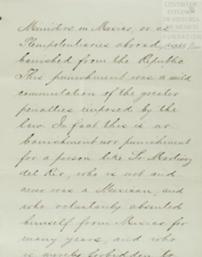 Ministers in Mexico, or as
Plenipotentiaries abroad, was
banished from the Republic
This punishment was a mild
commutation of the greater
penalties imposed by the
law. In fact this is no
banishment nor punishment
for a person like Sr Martinez
del Rio, who is not and
never was a Mexican, and
who voluntarily absented
himself from Mexico for
many years, and who
is merely forbidden to